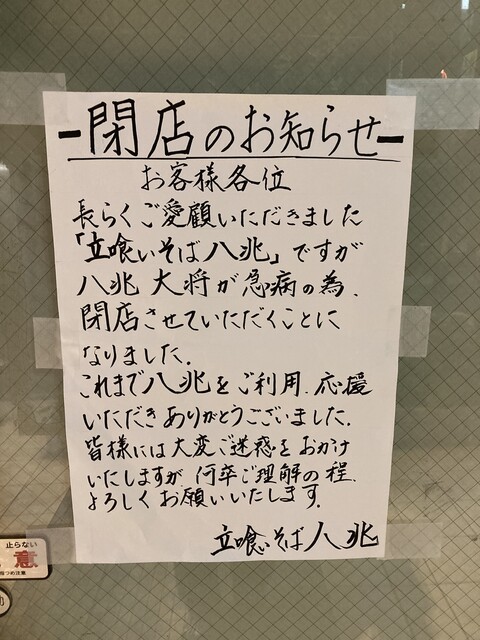 -閉店のお知らせ-
お客様各位
長らくご愛顧いただきました
「立喰いそば八兆」ですが
八兆 大将が急病の為、
閉店させていただくことに
なりました。
これまで八兆をご利用、応援
いただきありがとうございました。
皆様には大変ご迷惑をおかけ
いたしますが 何卒ご理解の程、
よろしくお願いいたします。
立喰いそば八兆
止らない
意
指つめ注意